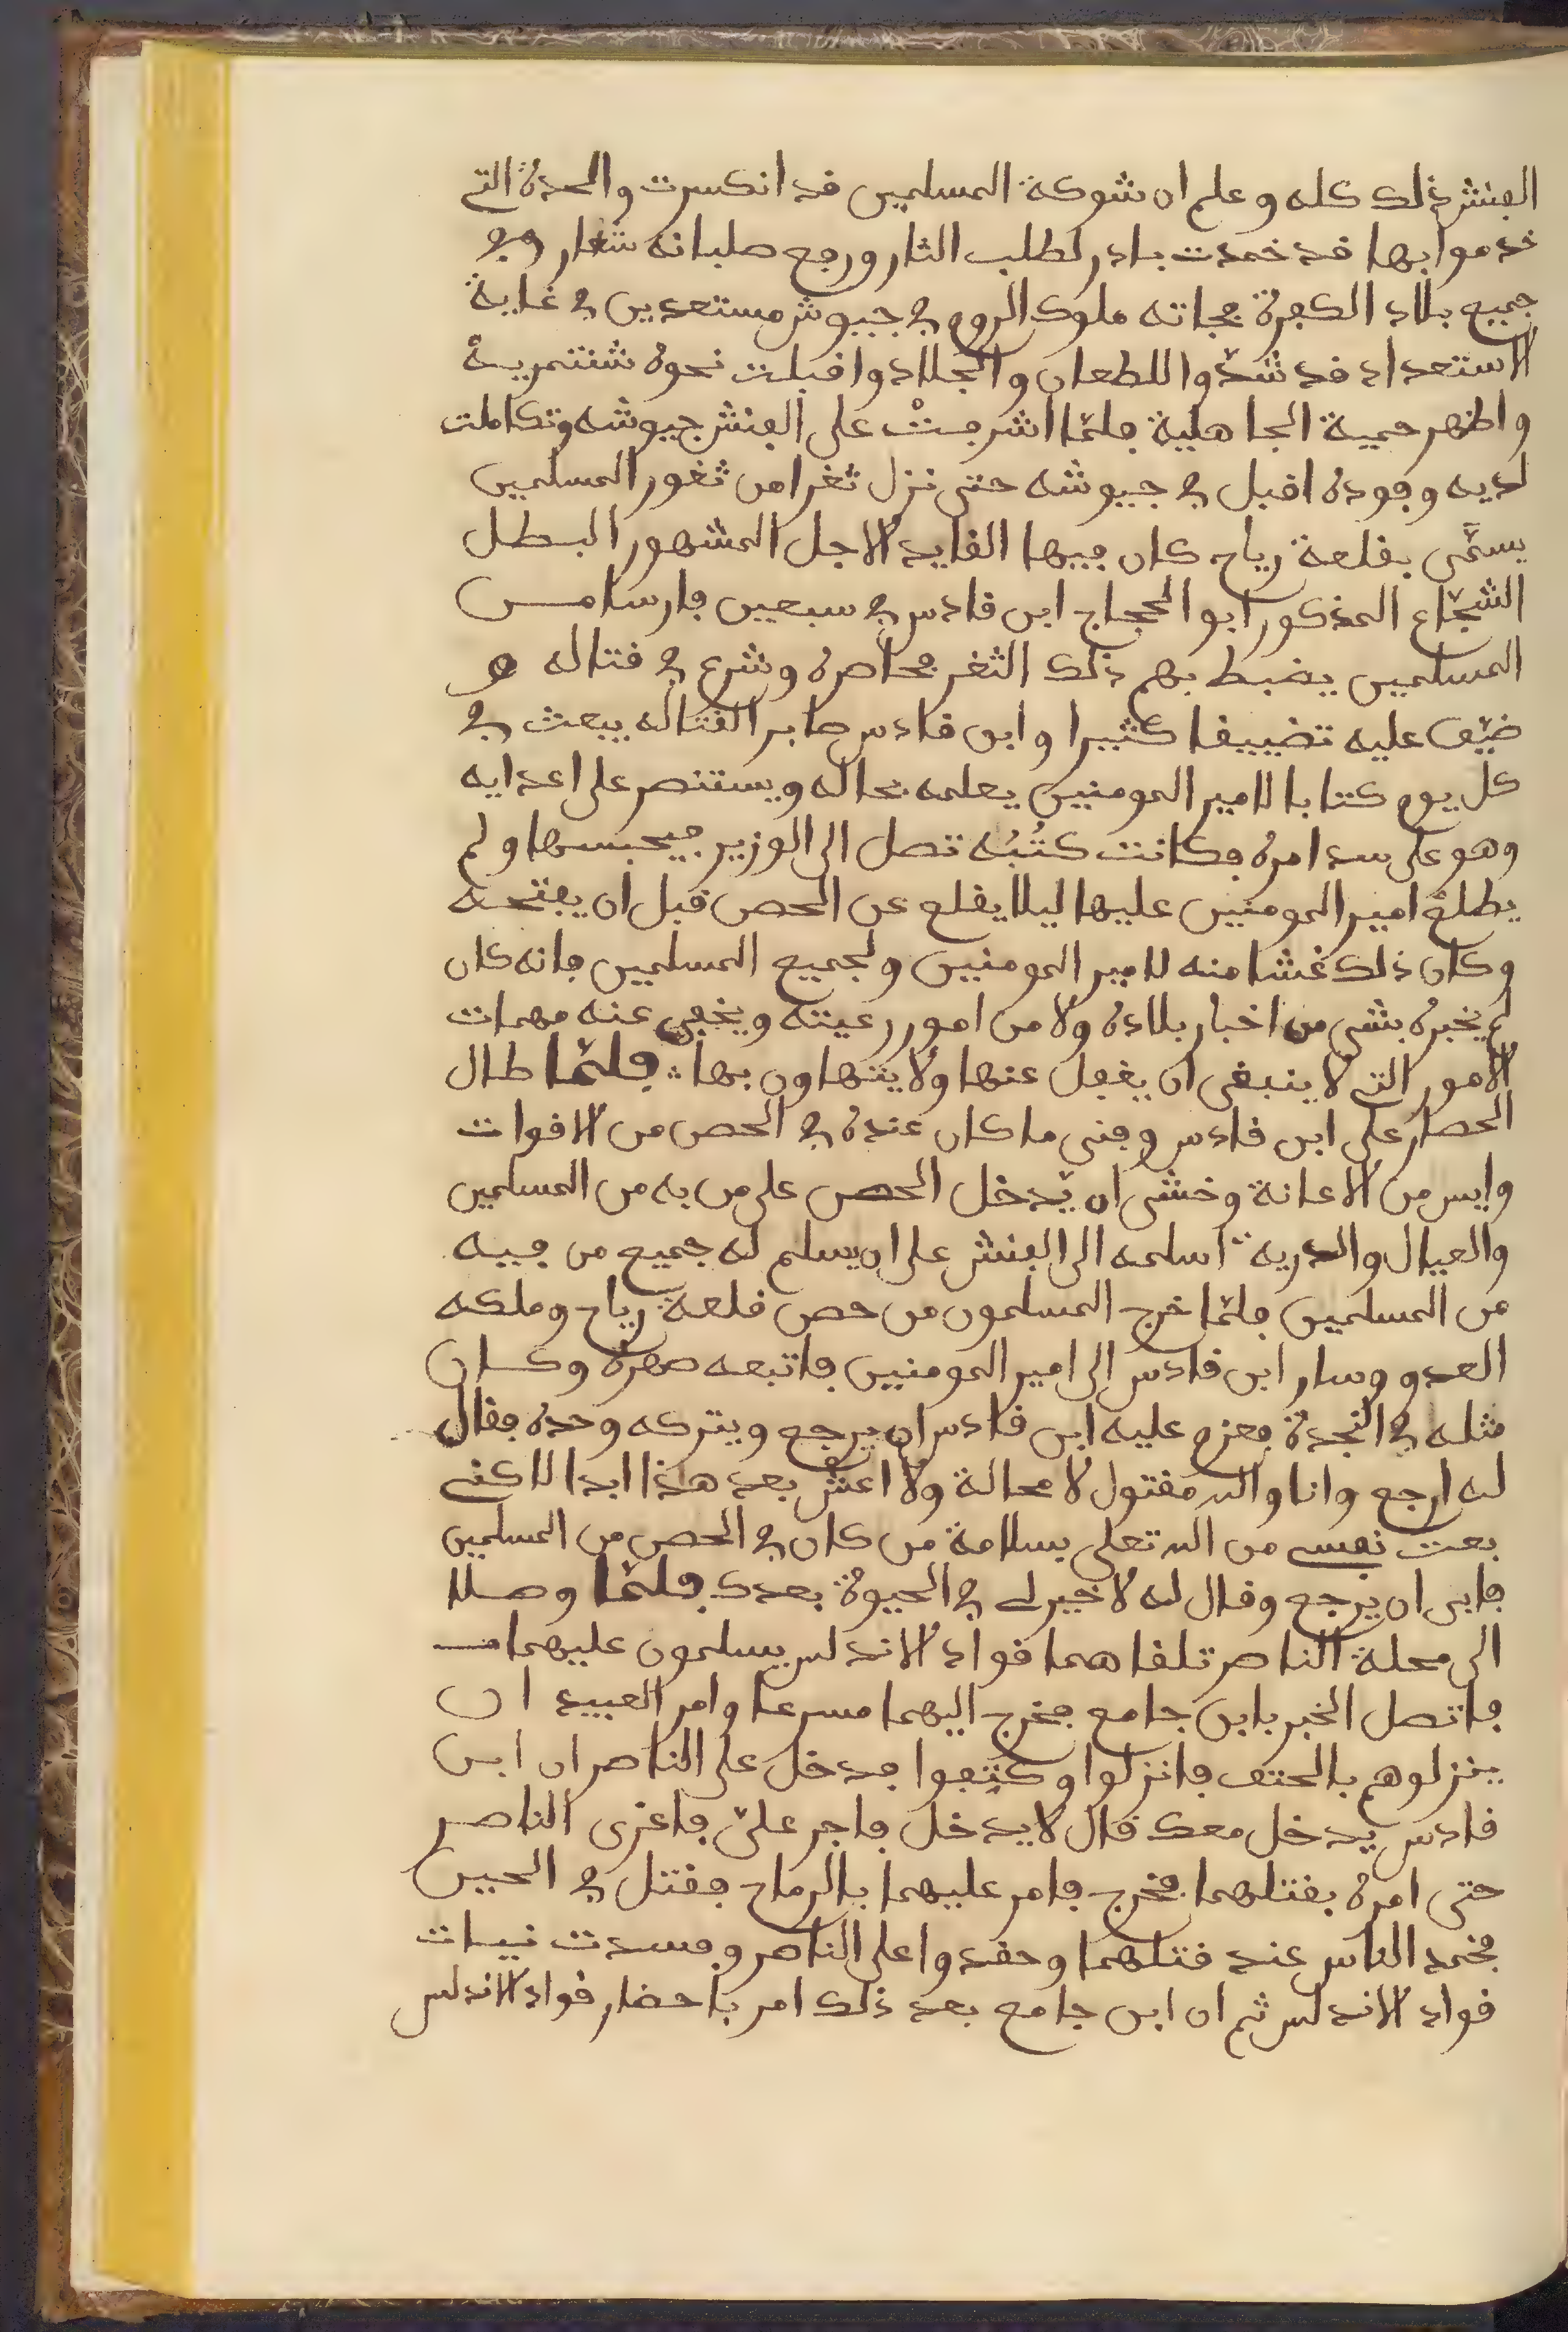 الفنش ذلك كله وعلم ان شوكة المسلمين قد انكسرت والحدة التي
قدموا بها قد خمدت بادر لطلب الثار ورجع صلبانه شعار وفي
جميع بلاد الكفرة فجاته ملوك الروم في جيوش مستعدين في غاية
الاستعداد قد شدّوا للطعان والجلاد واقبلت نحوه شنتمرية
واظهر حمية الجاهلية فلمّا اشرفتْ على الفنش جيوشه وتكاملت
لديه وفوده اقبل في جيوشه حتى نزل ثغرا من ثغور المسلمين
يسمَّى بقلعة رياح كان فيها القايد الاجل المشهور البطل
الشجّاع المذكور ابو الحجاج ابن قادس في سبعين فارسا من
المسلمين يضبط بهم ذلك الثغر فحاصره وشرع في قتاله و
ضيّق عليه تضييقا كثيرا وابن قادس صابر القتاله يبعث في
كل يوم كتابا لامير المومنين يعلمه بحاله ويستنصر على اعدايه
وهو على سد امره فكانت كتُبُه تصل الى الوزير فيحبسها ولم
يطلع امير المومنين عليها ليلا يقلع عن الحصن قبل ان يفتحه
وكان ذلك غشا منه لامير المومنين ولجميع المسلمين فانه كان
لم يخبره بشى من اخبار بلاده ولا من امور رعيته ويخفي عنه مهمات
الامور التي لا ينبغى ان يغفل عنها ولا يتهاون بها ؞ فلمّا طال
الحصار على ابن قادس وفنى ما كان عنده في الحصن من الاقوات
وايس من الاعانة وخشى ان يّدخل الحصن على من به من المسلمين
والعيال والدرية ؞ اسلمه الى الفنش على ان يسلم له جميع من فيه
من المسلمين فلمّا خرج المسلمون من حصن قلعة رياح وملكه
العدو وسار ابن قادس الى امير المومنين فاتبعه صهره وكان
مثله في النجدة فعزم عليه ابن قادس ان يرجع ويتركه وحده فقال
له ارجع وانا والله مقتول لا محالة ولا اعش بعد هذا ابدا لاكني
بعت نفسي من الله تعلى بسلامة من كان في الحصن من المسلمين
فابى ان يرجع وقال له لا خير لي في الحيوة بعدك فلمّا وصلا
الى محلة الناصر تلقاهما قواد الاندلس يسلمون عليهما
فاتصل الخبر بابن جامع فخرج اليهما مسرعا وامر العبيد ان
ينزلوهم بالحتف فانزلوا وكتّفوا فدخل على الناصر ان ابن
قادس يدخل معك قال لا يدخل فاجر علىّ فاغرى الناصر
حتى امره بقتلهما فخرج فامر عليهما بالرماح فقتل في الحين
فخمد الناس عند قتلهما وحقدوا على الناصر وفسدت نيات
قواد الاندلس ثم ان ابن جامع بعد ذلك امر باحضار قواد الاندلس